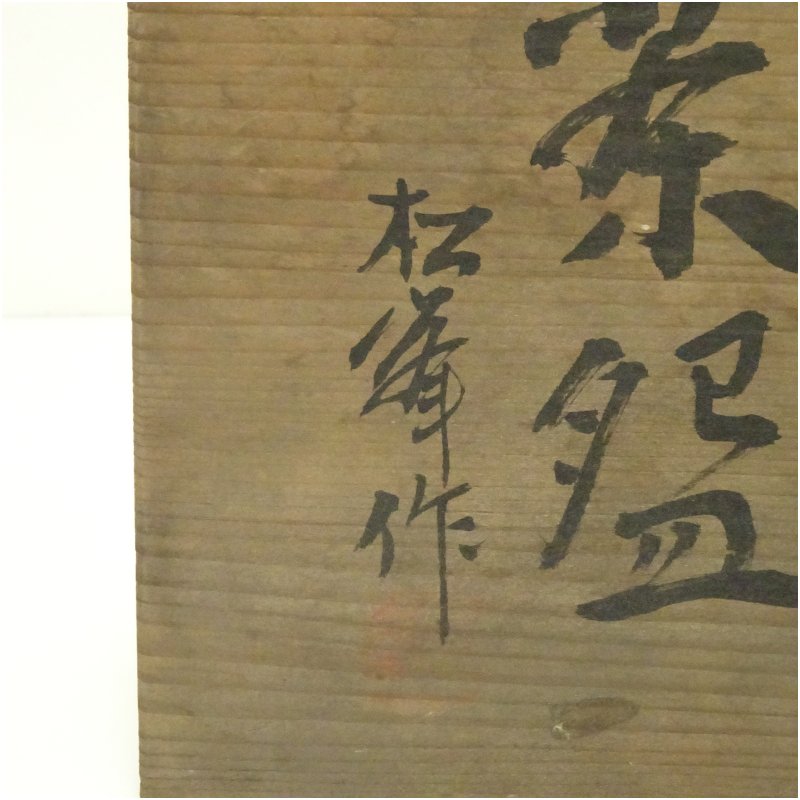 茶盌
松峯作